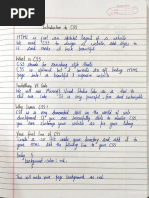 Introduction to CSS
HTML is just our skeleton layout of a website
We need CSS to design a website, add styles to
it and make it look beautiful
What is CSS
CSS stands for Cascading Style Sheets
CSS is optional but it converts an off looking HTML
page into a beautiful & responsive website
Installing VS Code
We will use Microsoft Visual Studio Code as a tool to
Why learn CSS?
CSS is a very demanded skill in the world of web
development. If you are successfully able to
CSS you can customize your website as per your
liking
Your first line of CSS
Create a .css file inside your directory and add it to
your HTML. Add the following line to your CSS
body {
background-color: red;
}
This will make your page background as red.